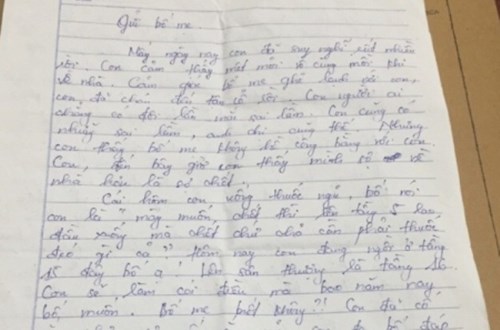 Gửi bố mẹ
Mấy ngày nay con đã suy nghĩ rất nhiều
rồi. Con cảm thấy mệt mỏi vô cùng mỗi khi
về nhà. Cảm giác bố mẹ ghẻ lạnh với con,
con đã chịu đủ tất cả rồi. Con người ai
chẳng có đôi lần mắc sai lầm. Con cũng có
những sai lầm, anh chị cũng thế. Nhưng
con thấy bố mẹ không hề công bằng với con.
Con, đến bây giờ con thấy mình sợ về
nhà hơn là sợ chết.
Cái hôm con uống thuốc ngủ bố nói
con là mày muốn chết thì lên tầng 5 lao
đầu xuống mà chết chứ cần phải thuốc
gì cả? Hôm nay con đang ngồi ở tầng
15 đây bố ạ! Lên sân thượng là tầng 16.
Con sẽ làm cái điều mà bao năm nay
bố muốn. Bố mẹ biết không?! Con đã cố